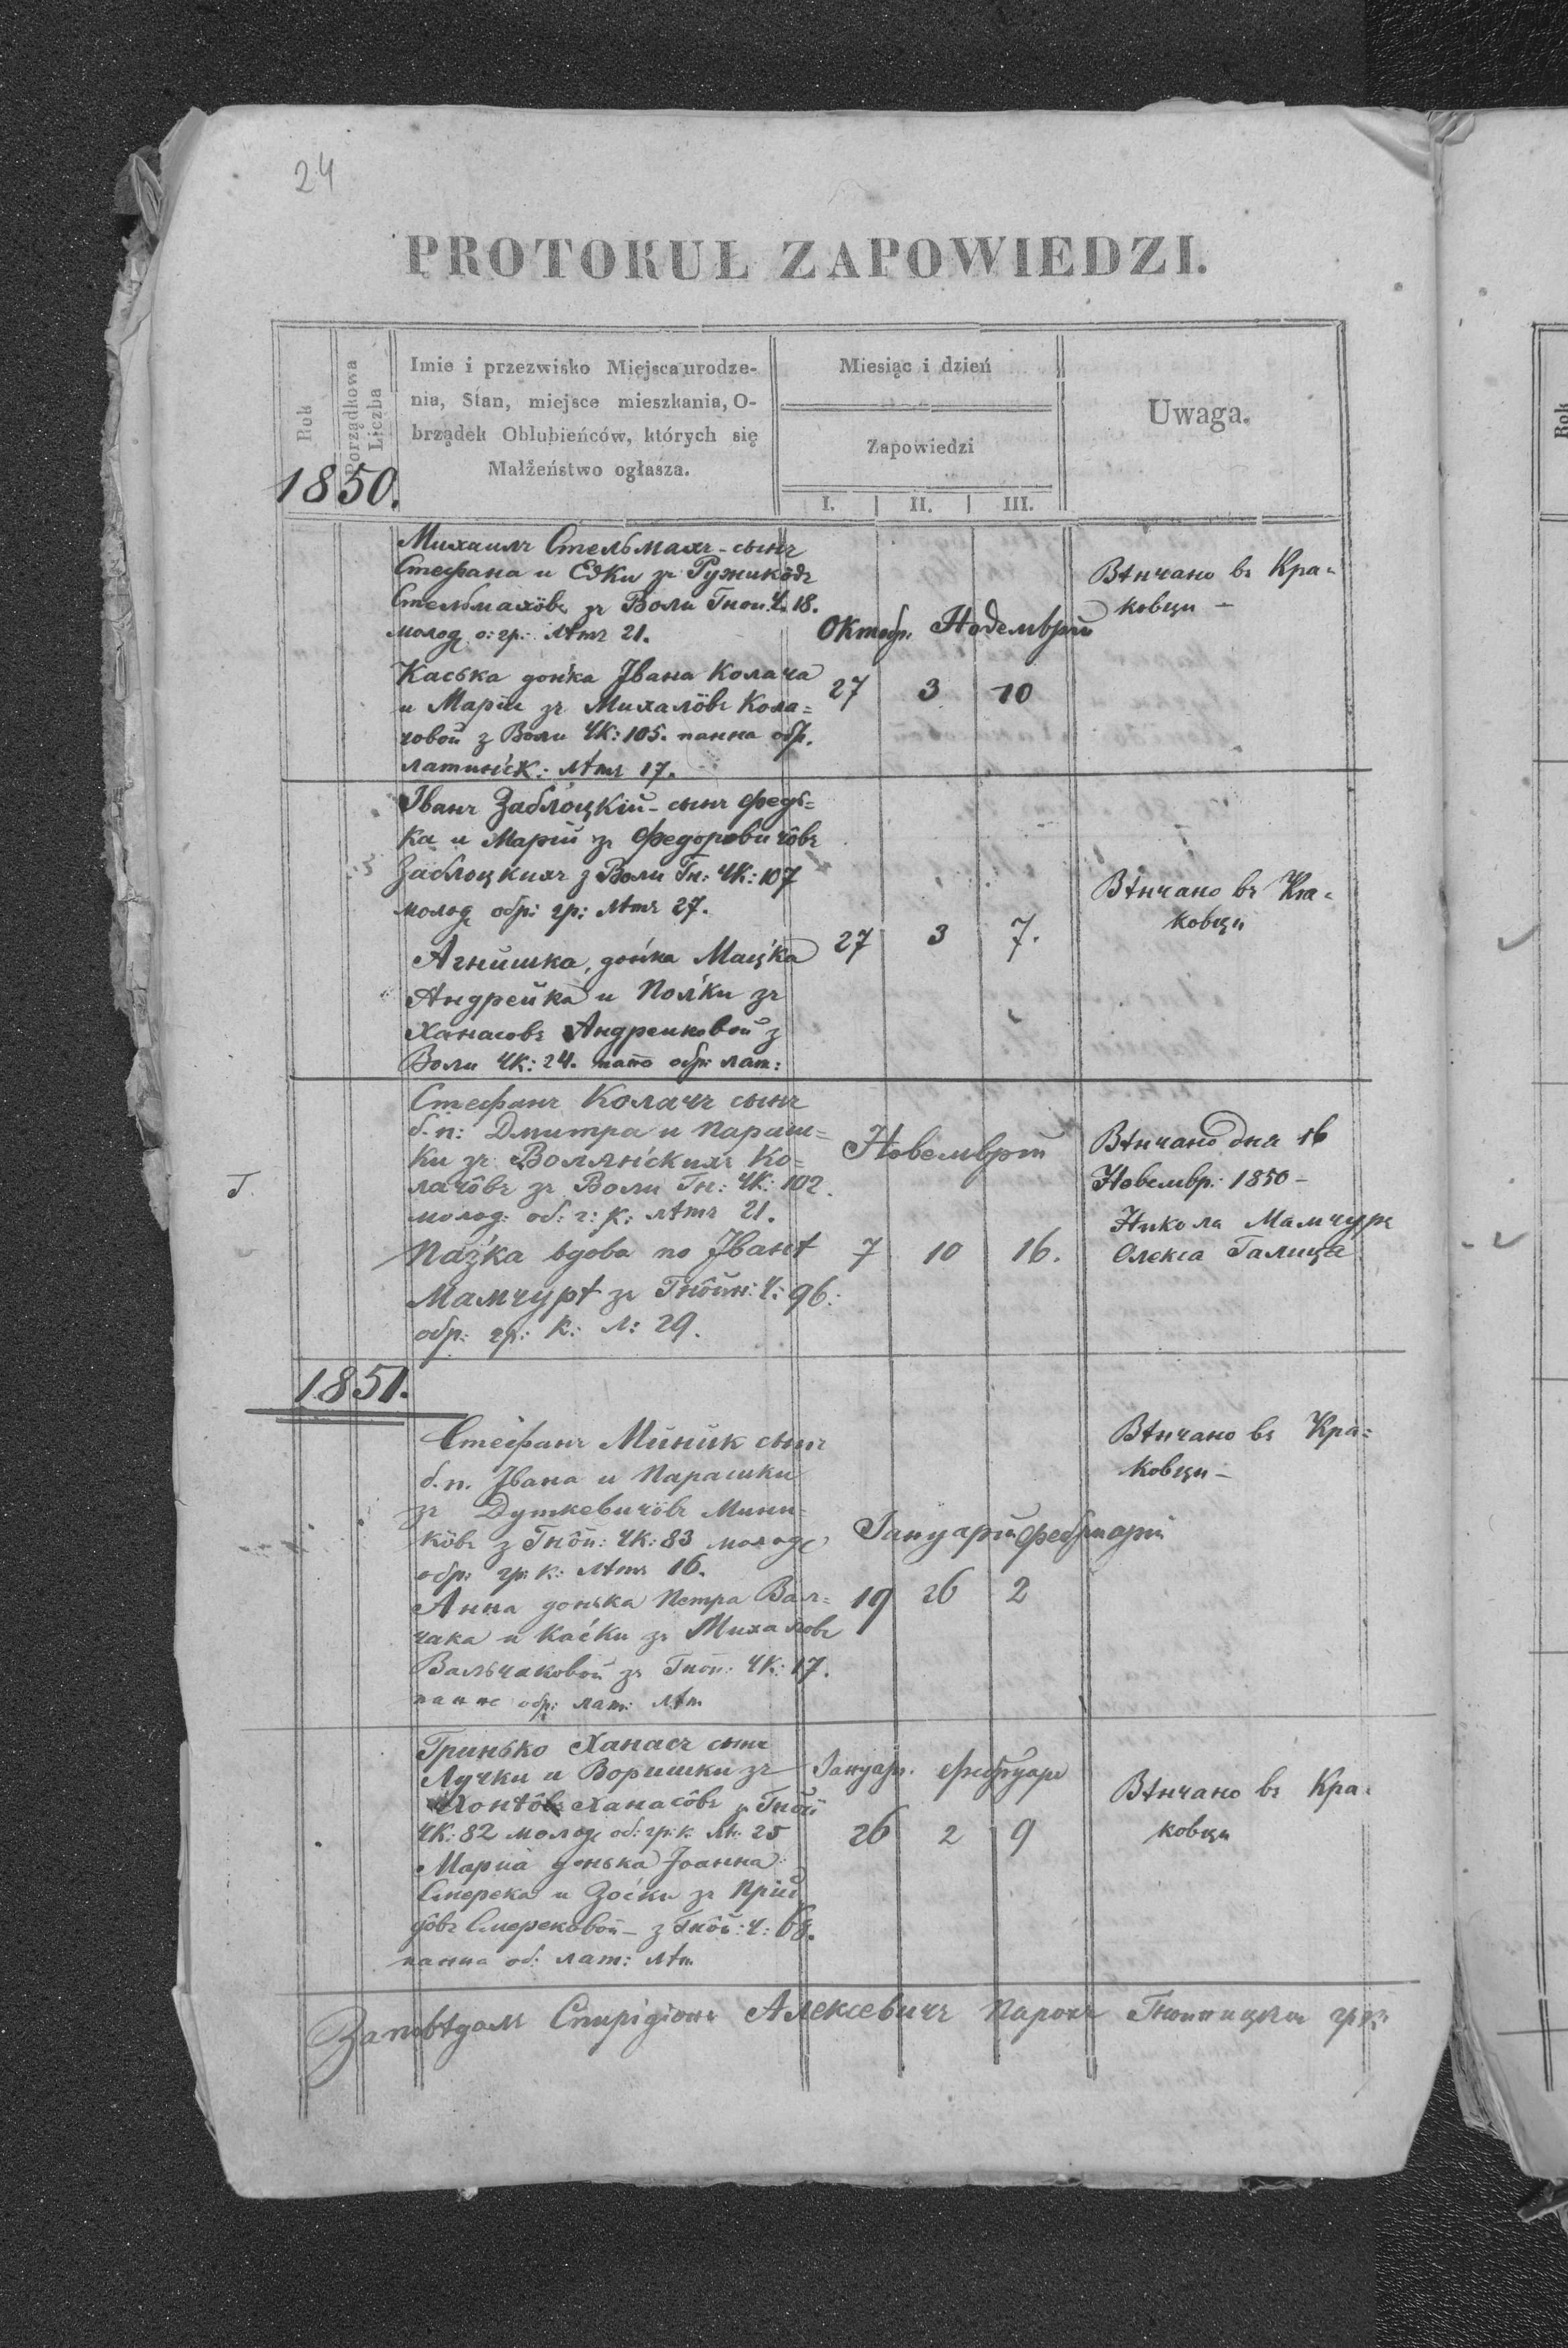 24
PROTOKUŁ ZAPOWIEDZI.
Rok
Porządkowa Liczba
Imie i przezwisko Miejsca urodze-
nia, Stan, miejsce mieszkania, O-
brządek Oblubieńców, których się
Małżeństwo ogłasza.
Miesiąc i dzień
Zapowiedzi
I. II. III.
Uwaga.
1850.
Михаилъ Стельмахъ - сынъ
Стефана и Едки зъ Ружикôвъ
Стельмахôвъ зъ Воли Гнои. Ч. 18.
молод. о: гр: лѣтъ 21.
Каська донька Івана Колача
и Маріи зъ Михалôвъ Кола=
човой з Воли ЧК: 105. панна обр.
латиньск: лѣтъ 17.
Октобр. Новемврій
27 3 10
Вѣнчано въ Кра=
ковци -
Іванъ Заблоцкій - сынъ Федь=
ка и Маріи зъ Федоровичôвъ
Заблоцкихъ з Воли Гн: ЧК: 107
молод обр: гр: лѣтъ 27.
Агнишка, донька Мацька
Андрейка и Польки зъ
Ханасовъ Андрейковой з
Воли ЧК: 24. обр: лат:
27 3 7.
Вѣнчано въ Кра=
ковци
Стефанъ Колачъ сынъ
б. п: Дмитра и Параш=
ки зъ Волянскихъ Ко=
лачôвъ зъ Воли Гн: ЧК: 102.
молод: об: г: к: лѣтъ 21.
Пазька вдова по Іванѣ
Мамчурѣ зъ Гнôйн: Ч: 96.
обр: гр: К: л: 29.
Новемврій
7 10 16.
Вѣнчано дня 16
Новемвр: 1850 -
Никола Мамчуръ
Олекса Галица
1851.
Стефанъ Миник сынъ
б. п. Івана и Парашки
зъ Дуткевичôвъ Мини=
кôвъ з Гнôй: ЧК: 83 молодц
обр: гр: к: лѣтъ 16.
Анна донька Петра Валь=
чака и Каськи зъ Михаловъ
Вальчаковой зъ Гной: ЧК: 17.
панна обр: лат: лѣт
Іануарій Фебруарій
19 26 2
Вѣнчано въ Кра=
ковци -
Гринько Ханасъ сынъ
Лучки и Воришки зъ
Ханасôвъ Гной
ЧК: 82 молодц об: гр: к. лѣ: 25
Мариа донька Іоанна
Смерека и Зоськи зъ
Смерековой - з Гнôй: Ч: 68.
панна об: лат: лѣт
Іануар. Фебруар
26 2 9
Вѣнчано въ Кра=
ковци
Заповѣдалъ Спиридіонъ Алексевичъ Парохъ Гнойницкій гр: к: